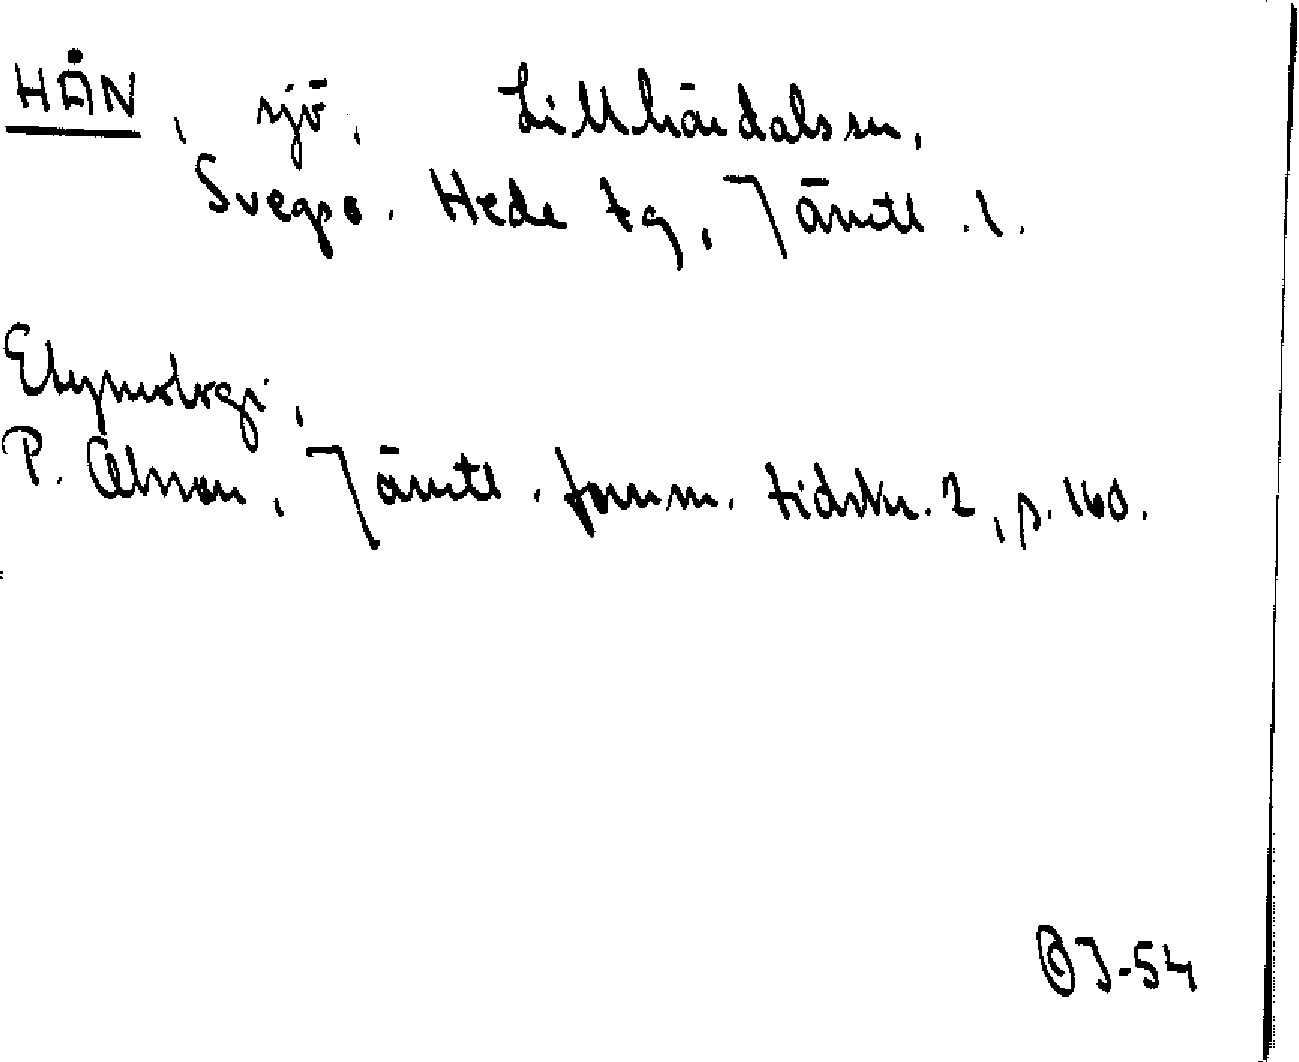 HÅN, sjö, Lillhärdals sn,
Svegs o. Hede tg, Jämtl. l.
Etymologi,
P. Olsson, Jämtl. fornm. tidskr. 2, p. 160.
J-54